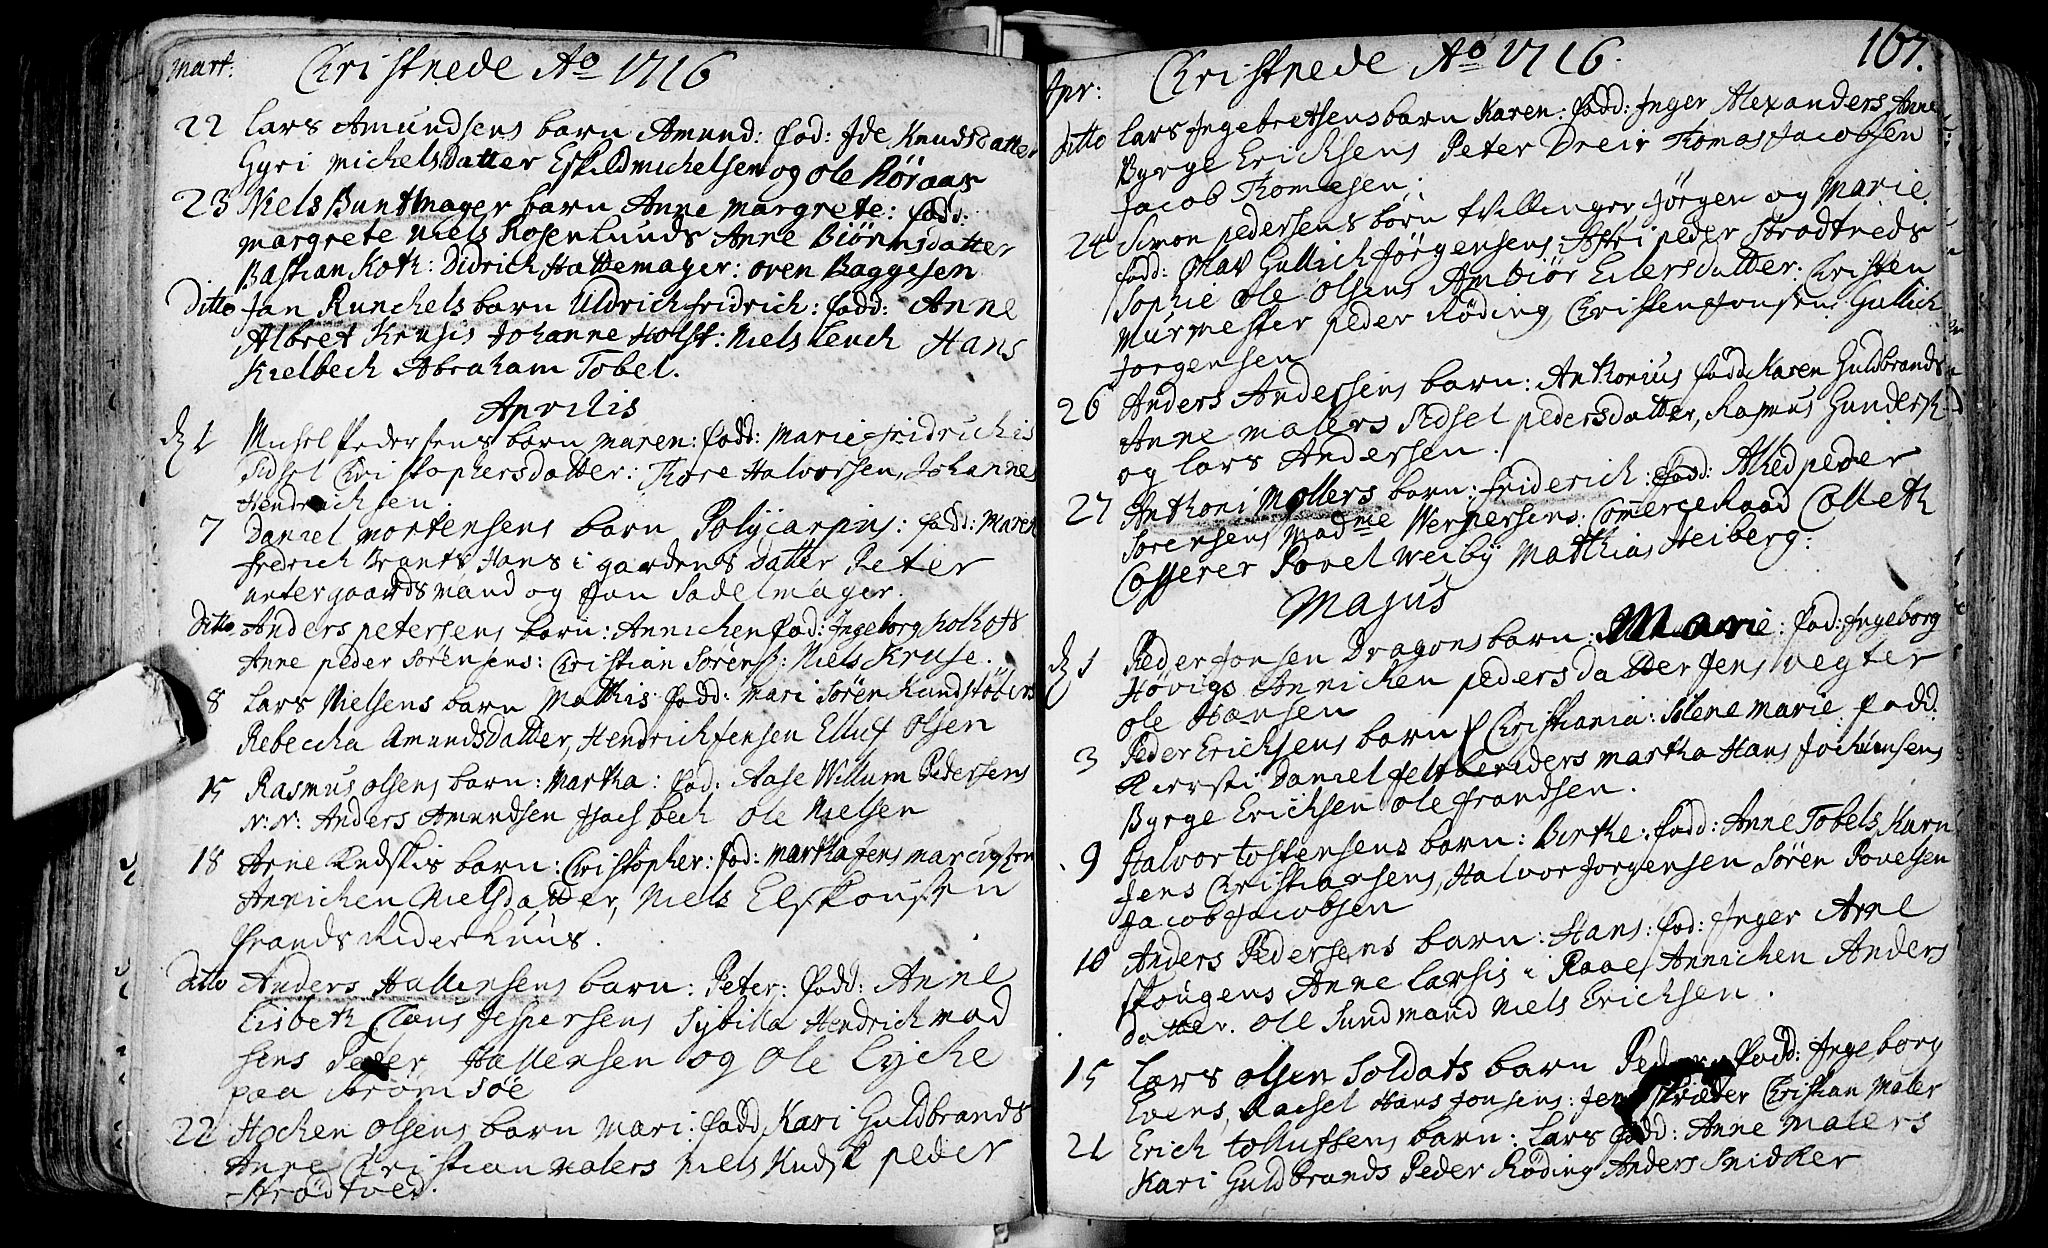 Mart:
Christnede Ao 1716
22 Lars Amundsens barn Amund: fad: Ide Knudsdatter
Gyri Michelsdatter Eskild Michelsen og Ole Röraas
23 Niels Buntmager barn Anne Margrete: fadd:
Margrete Niels Rosenlunds Anne Biörnsdatter
Bastian Koth: Didrich Hattemager: oven Baggesen
Ditto Jan Runchels barn Uldrich fridrich: fadd: Anne
Albret Krusis Johanne Holst: Niels Leuch Hans
Kielbech Abraham Tobel.
Aprilis
d 1 Michel Pedersens barn Maren: fadd: Marie fridrichis
Sidsel Christophersdatter: Thore Halvorsen, Johannes
Hendrichsen.
7 Daniel Mortensens barn Polycarpus: fadd: Maren
fredrich Brants Hans i gardens datter Peter
untergaards mand og Jan Sadelmager.
Ditto Anders Petersens barn: Annichen fad: Ingeborg Holhofs
Anne Peder Sörensens: Christian Sörens: Niels Kruse.
8 Lars Nielsens barn Mathis fadd: Mari Sören Kandstöbers
Rebeccha Amundsdatter, Hendrich Jensen Elluf Olsen
15 Rasmus Olsens barn: Martha: fad: Aase Willum Pedersens
N: N: Anders Amundsen Isach bech Ole Nielsen
18 Arne barn: Christopher: fad: Martha Jens
Annichen Nielsdatter, Niels
frands Riderhuus.
Ditto Anders Hallensens barn: Peter: fadd: Anne
Lisbeth Claus Jespersens Sybilla Hendrich Mad
sens Peder Hallensen og Ole Lyche
paa Bromsöe
22 Hochen Olsens barn Mari: fadd Kari Guldbrands
Anne Christian Malers Niels Peder
Strödtved.
167.
Apr:
Christnede Ao 1716.
Ditto Lars Ingebretsens barn Karen: fadd: Inger Alexanders Anne
Byrge Ericksens Peter Dreir Thomas Jacobsen
Jacob Thomesen;
24 Simon Pedersens börn tvillinger Jörgen og Marie
fadd: Gullich Jörgensens, Astri Peder Strodtveds
Sophie Ole Olsens Ambiör Eilersdatter. Christen
Murmester Peder Röding, Christen Jonsen. Gullich
Jorgensen
26 Anders Andersens barn: Anthonius fadd Karen Guldbrands
Anne Malers Sidsel Pedersdatter, Rasmus Gunders
og Lars Andersen.
27 Anthoni Mollers barn: friderich: fad: Alhed Peder
Sorensens Madme Werpersens: Comerce Raad Colleth
Casserer Povel Weiby Matthias Heiberg:
Majus
d 1 Peder Jonsen Dragons barn: Marie: fad: Ingeborg
Hövigs Annichen Pedersdatter Jens Vegter
Ole Hansen
3 Peder Ericksens barn Christiania: Solene Marie fadd:
Kiersti Daniel feltbereders Martha Hans Jochumsens
Byrge Ericksen Ole frandsen.
9 Halvor tostensens barn: Birthe: fadd: Anne Tobels, Karn
Jens Christiansens, Halvor Jorgensen Sören Povelsen
Jacob Jacobsen
10 Anders Pedersens barn: Hans: fad: Inger Arne
Skougens Anne Larsis i Raae, Annichen Anders
datter. Ole Sundmand Niels Ericksen.
15 Lars Olsen Soldats barn Peder fadd: Ingeborg
Evens, Rachel Hans Jonsens: Jens skræder Christian Maler
21 Erick tolluffsens barn: Lars fadd: Anne Malers
Kari Guldbrands Peder Röding Anders Snidker